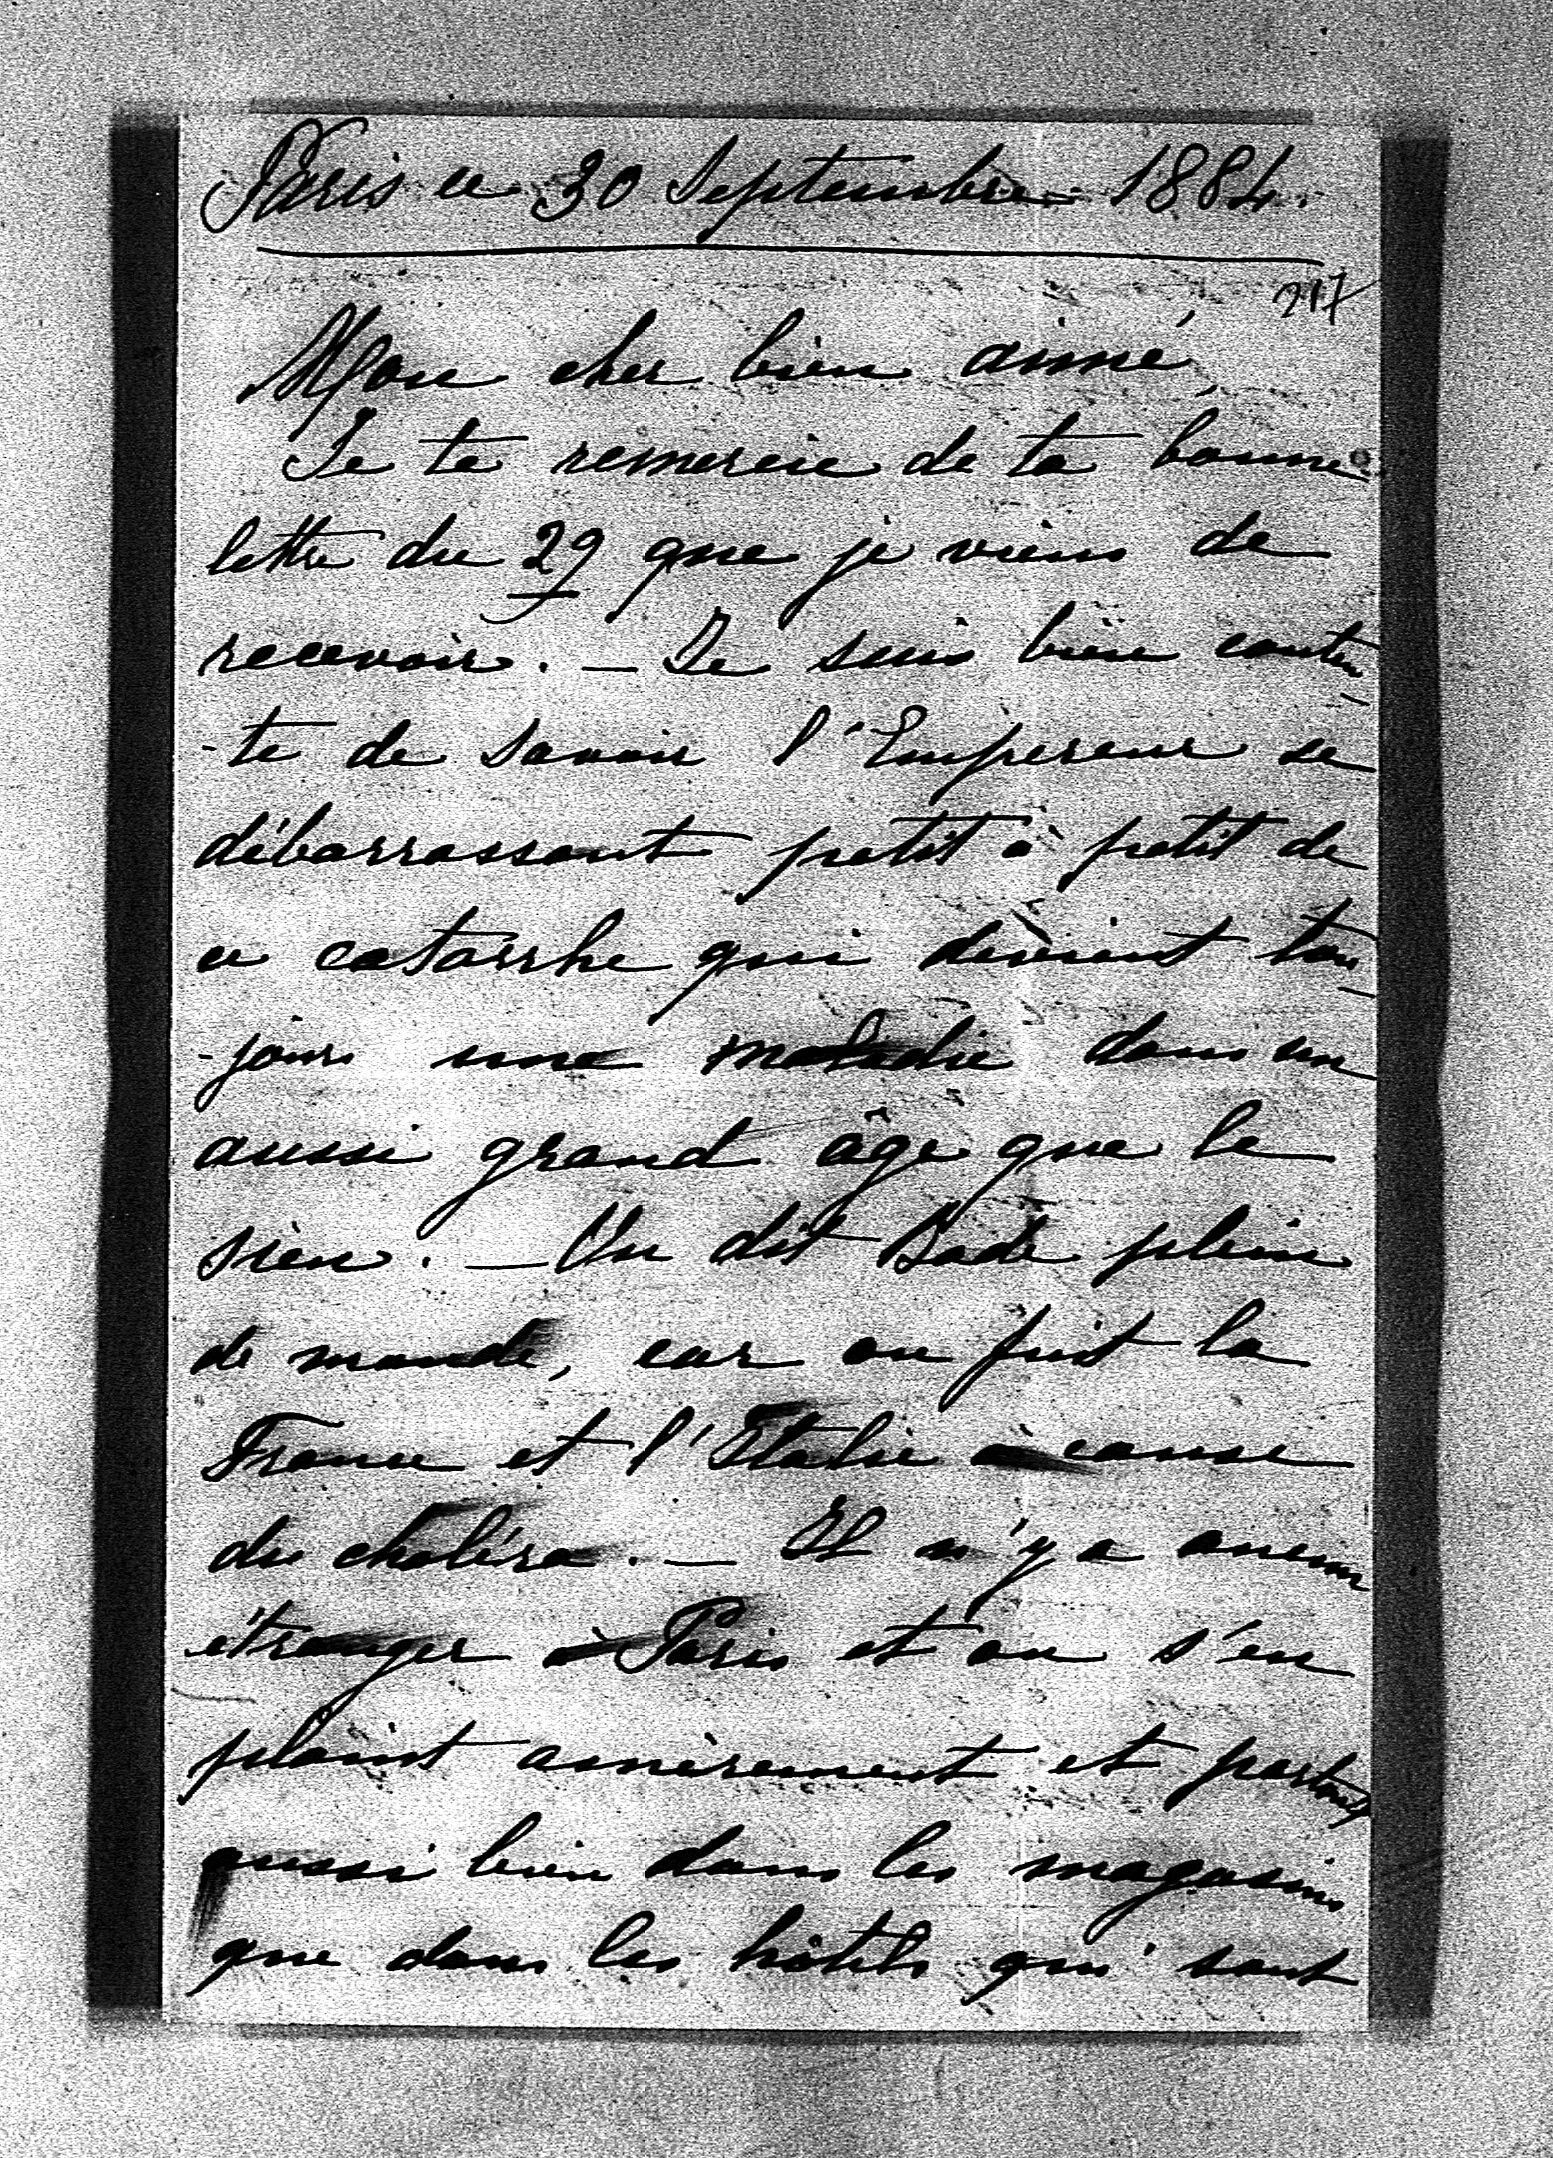 Paris ce 30 Septembre 1884.
217
Mon cher bien aimé,
Je te remercie de ta bonne
lettre du 29 que je viens de
recevoir. — Je suis bien conten
-te de savoir l'Empereur se
débarrassant petit à petit de
ce catarrhe qui devient tou
-jours une maladie dans un
aussi grand âge que le
sien. — On dit Bade plein
de monde, car on fuit la
France et l'Italie à cause
du choléra. — Il n'y a aucun
étranger à Paris et on s'en
plaint amèrement et partout
aussi bien dans les magasins
que dans les hôtels qui sont